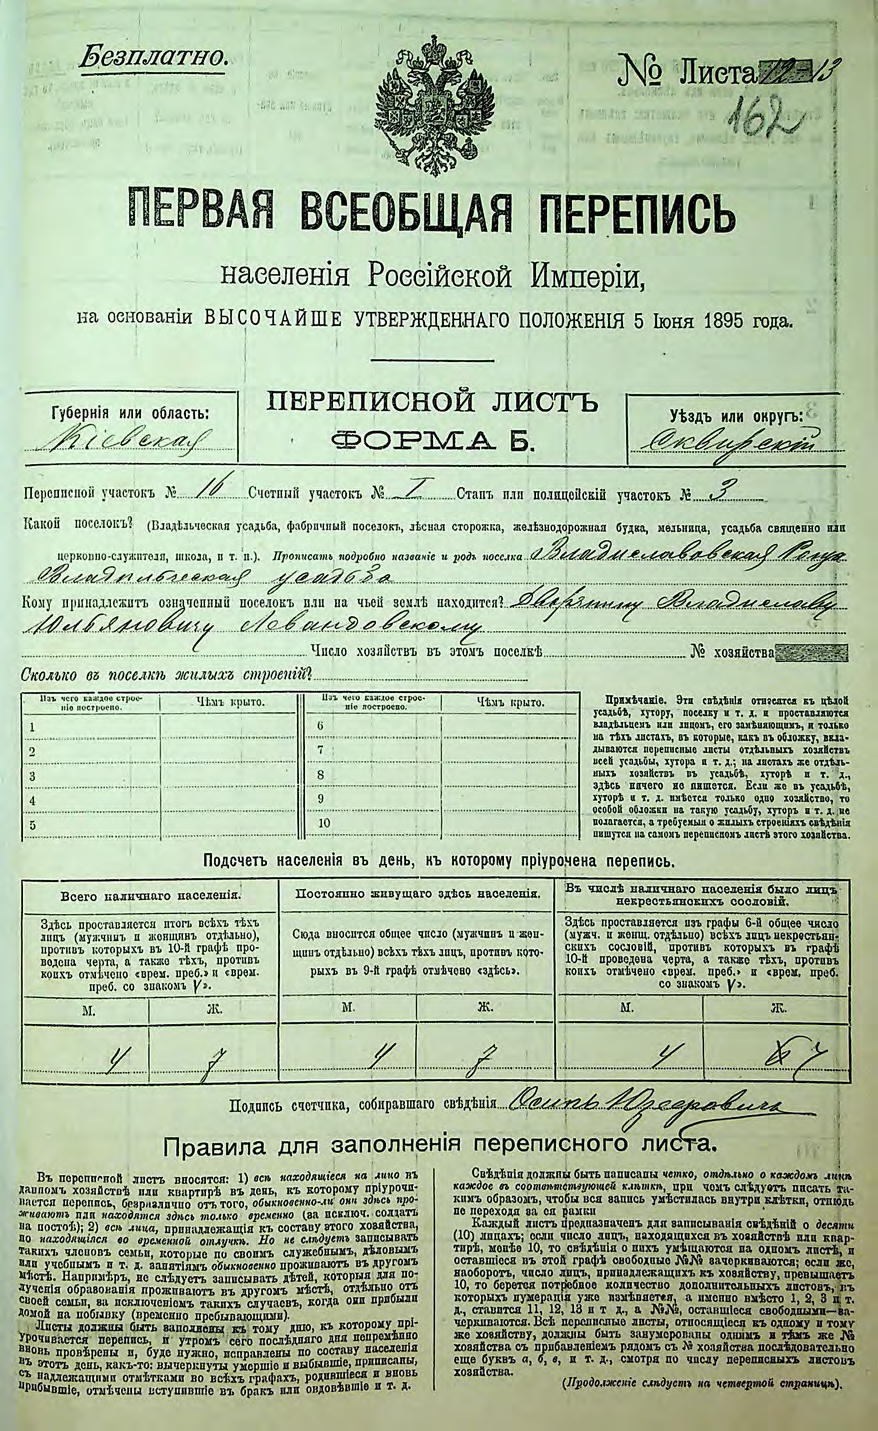 Безплатно.
№ Листа 12-13
162
ПЕРВАЯ ВСЕОБЩАЯ ПЕРЕПИСЬ
населенія Россійской Имперіи,
на основаніи ВЫСОЧАЙШЕ УТВЕРЖДЕННАГО ПОЛОЖЕНІЯ 5 Іюня 1895 года.
ПЕРЕПИСНОЙ ЛИСТЪ
ФОРМА Б.
Губернія или область:
Кіевская
Уѣздъ или округъ:
Сквирскій
Переписной участокъ № 16 Счетный участокъ № I Станъ или полицейскій участокъ № 3
Какой поселокъ? (Владѣльческая усадьба, фабричный поселокъ, лѣсная сторожка, желѣзнодорожная будка, мельница, усадьба священно или
церковно-служителя, школа, и т. п.). Прописать подробно названіе и родъ поселка Владиславовская
Владѣльческая усадьба
Кому принадлежитъ означенный поселокъ или на чьей землѣ находится? Дворянину Владиславу
Юльяновичу Левандовскому
Число хозяйствъ въ этомъ поселкѣ № хозяйства
Сколько въ поселкѣ жилыхъ строеній?
Изъ чего каждое строеніе построено. Чѣмъ крыто. Изъ чего каждое строеніе построено. Чѣмъ крыто.
1 6
2 7
3 8
4 9
5 10
Примѣчаніе. Эти свѣдѣнія относятся къ цѣлой
усадьбѣ, хутору, поселку и т. д. и проставляются
владѣльцемъ или лицомъ, его замѣняющимъ, и только
на тѣхъ листахъ, въ которые, какъ въ обложку, вкла-
дываются переписные листы отдѣльныхъ хозяйствъ
всей усадьбы, хутора и т. д.; на листахъ же отдѣль-
ныхъ хозяйствъ въ усадьбѣ, хуторѣ и т. д.,
здѣсь ничего не пишется. Если же въ усадьбѣ,
хуторѣ и т. д. имѣется только одно хозяйство, то
особой обложки на такую усадьбу, хуторъ и т. д. не
полагается, а требуемыя о жилыхъ строеніяхъ свѣдѣнія
пишутся на самомъ переписномъ листѣ этого хозяйства.
Подсчетъ населенія въ день, къ которому пріурочена перепись.
Всего наличнаго населенія.
Здѣсь проставляется итогъ всѣхъ тѣхъ
лицъ (мужчинъ и женщинъ отдѣльно),
противъ которыхъ въ 10-й графѣ про-
ведена черта, а также тѣхъ, противъ
коихъ отмѣчено «врем. преб.» и «врем.
преб. со знакомъ V».
Постоянно живущаго здѣсь населенія.
Сюда вносится общее число (мужчинъ и жен-
щинъ отдѣльно) всѣхъ тѣхъ лицъ, противъ кото-
рыхъ въ 9-й графѣ отмѣчено «здѣсь».
Въ числѣ наличнаго населенія было лицъ
некрестьянскихъ сословій.
Здѣсь проставляется изъ графы 6-й общее число
(мужч. и женщ. отдѣльно) всѣхъ лицъ некрестьян-
скихъ сословій, противъ которыхъ въ графѣ
10-й проведена черта, а также тѣхъ, противъ
коихъ отмѣчено «врем. преб.» и «врем. преб.
со знакомъ V».
М. Ж. М. Ж. М. Ж.
4 7 4 7 4 7
Подпись счетчика, собиравшаго свѣдѣнія Осипъ
Правила для заполненія переписного листа.
Въ переписной листъ вносятся: 1) всѣ находящіеся на лицо въ
данномъ хозяйствѣ или квартирѣ въ день, къ которому пріурочи-
вается перепись, безразлично отъ того, обыкновенно-ли они здѣсь про-
живаютъ или находятся здѣсь только временно (за исключ. солдатъ
на постоѣ); 2) всѣ лица, принадлежащія къ составу этого хозяйства,
но находящіеся во временной отлучкѣ. Но не слѣдуетъ записывать
такихъ членовъ семьи, которые по своимъ служебнымъ, дѣловымъ
или учебнымъ и т. д. занятіямъ обыкновенно проживаютъ въ другомъ
мѣстѣ. Напримѣръ, не слѣдуетъ записывать дѣтей, которыя для по-
лученія образованія проживаютъ въ другомъ мѣстѣ, отдѣльно отъ
своей семьи, за исключеніемъ такихъ случаевъ, когда они прибыли
домой на побывку (временно пребывающими).
Листы должны быть заполнены къ тому дню, къ которому прі-
урочивается перепись, и утромъ сего послѣдняго дня непремѣнно
вновь провѣрены и, буде нужно, исправлены по составу населенія
въ этотъ день, какъ-то: вычеркнуты умершіе и выбывшіе, приписаны,
съ надлежащими отмѣтками во всѣхъ графахъ, родившіеся и вновь
прибывшіе, отмѣчены вступившіе въ бракъ или овдовѣвшіе и т. д.
Свѣдѣнія должны быть написаны четко, отдѣльно о каждомъ лицѣ
каждое въ соотвѣтствующей клѣткѣ, при чемъ слѣдуетъ писать та-
кимъ образомъ, чтобы вся запись умѣстилась внутри клѣтки, отнюдь
не переходя за ея рамки
Каждый листъ предназначенъ для записыванія свѣдѣній о десяти
(10) лицахъ; если число лицъ, находящихся въ хозяйствѣ или квар-
тирѣ, менѣе 10, то свѣдѣнія о нихъ умѣщаются на одномъ листѣ, и
оставшіеся въ этой графѣ свободные №№ зачеркиваются; если же,
наоборотъ, число лицъ, принадлежащихъ къ хозяйству, превышаетъ
10, то берется потребное количество дополнительныхъ листовъ, въ
которыхъ нумерація уже измѣняется, а именно вмѣсто 1, 2, 3 и т.
д., ставится 11, 12, 13 и т. д., а №№, оставшіеся свободными—за-
черкиваются. Всѣ переписные листы, относящіеся къ одному и тому
же хозяйству, должны быть занумерованы однимъ и тѣмъ же №
хозяйства съ прибавленіемъ рядомъ съ № хозяйства послѣдовательно
еще буквъ а, б, в, и т. д., смотря по числу переписныхъ листовъ
хозяйства.
(Продолженіе слѣдуетъ на четвертой страницѣ).